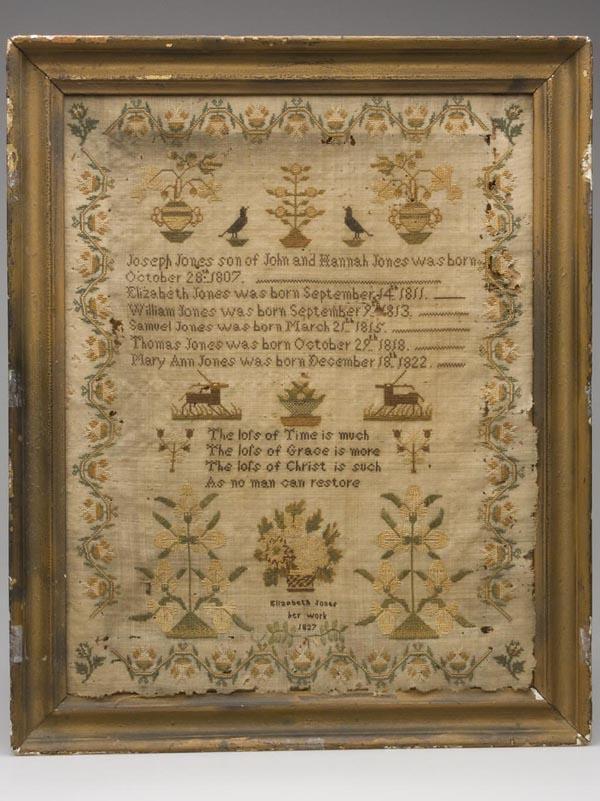 Joseph Jones son of John and Hannah Jones was born
October 28th 1807.
Elizabeth Jones was born September 14th 1811.
William Jones was born September 9th 1813.
Samuel Jones was born March 21th 1815.
Thomas Jones was born October 29th 1818.
Mary Ann Jones was born December 18th 1822.
The loſs of Time is much
The loſs of Grace is more
The loſs of Christ is such
As no man can restore
Elizabeth Jones
her work
1827